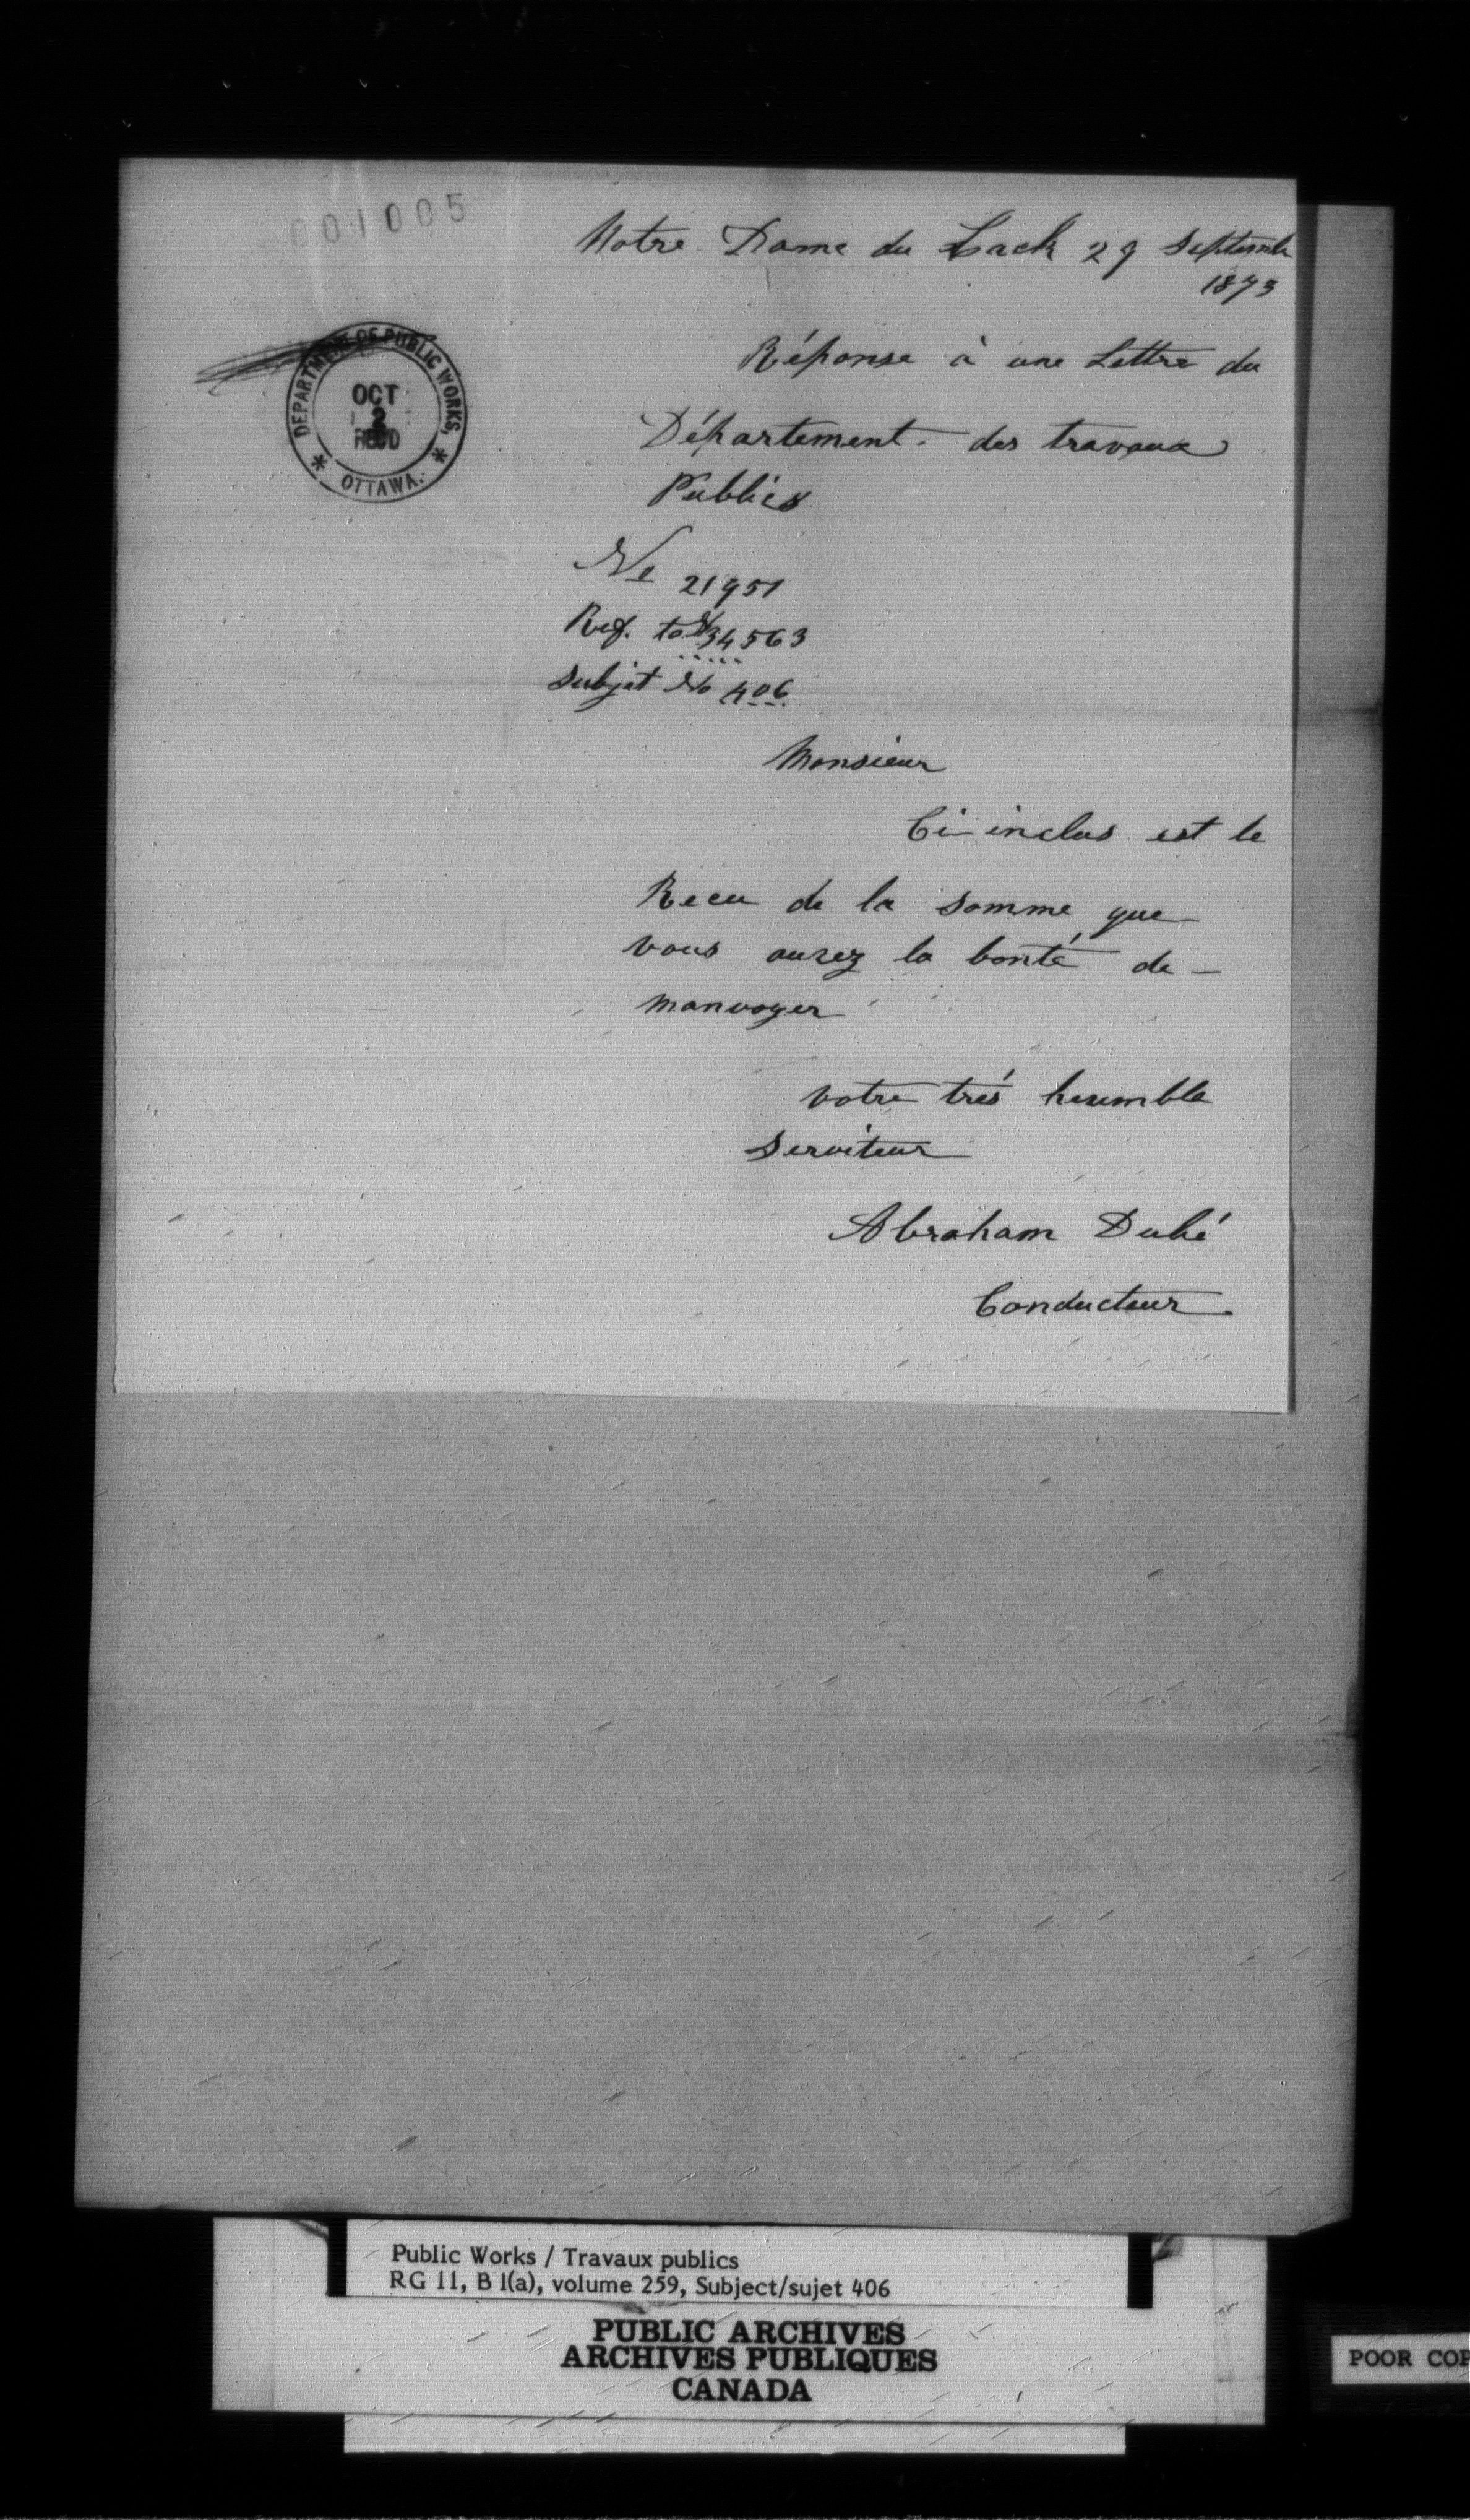 001005
Notre Dame du Lack 29 Septembre
1873
DEPARTMENT OF PUBLIC WORKS,
OCT
2
REC'D
OTTAWA.
Réponse à une Lettre du
Département des travaux
Publics
No 21951
Ref. to No 34563
Subjet No 406
Monsieur
Ci-inclus est le
Recu de la somme que
vous aurez la bonté de
manvoyer
votre trés heumble
Serviteur
Abraham Dubé
Conducteur
Public Works / Travaux publics
RG 11, B 1(a), volume 259, Subject/sujet 406
PUBLIC ARCHIVES
ARCHIVES PUBLIQUES
CANADA
POOR COP